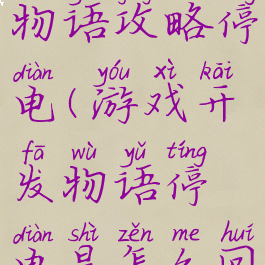 物语攻略停
diàn yóu xì kāi
电(游戏开
fā wù yǔ tíng
发物语停
diàn shì zěn me huí